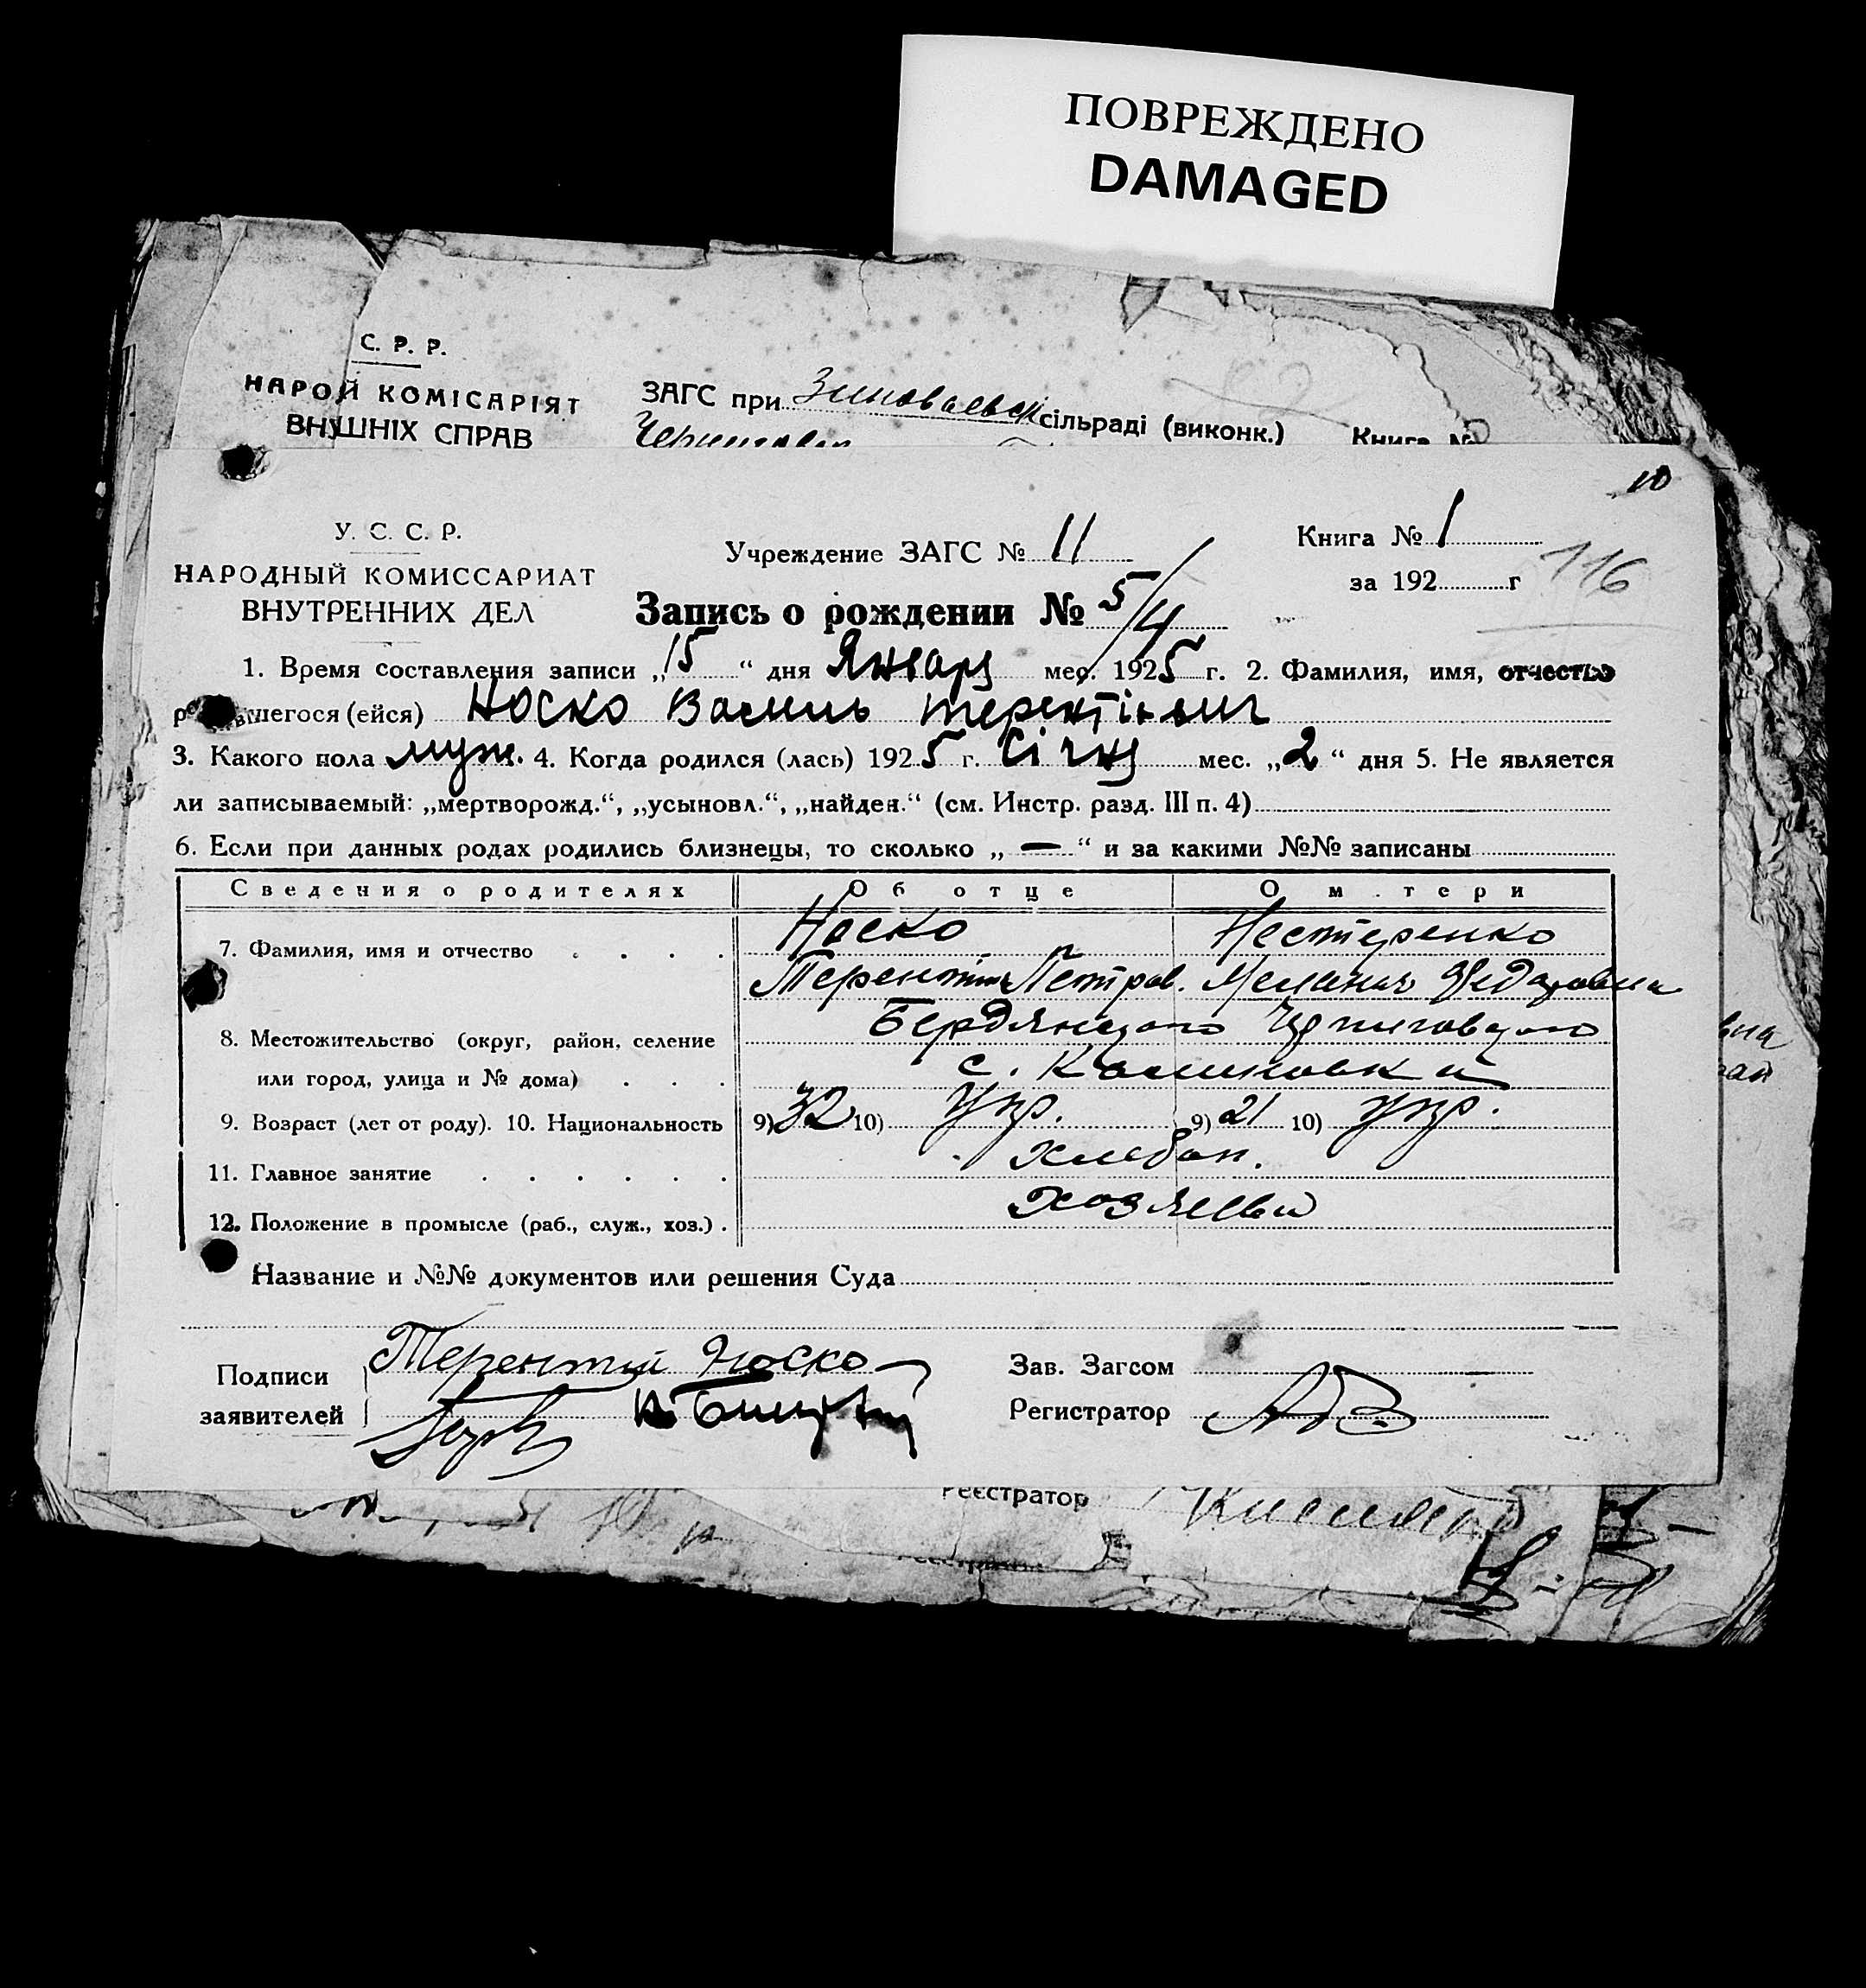 ПОВРЕЖДЕНО
DAMAGED
С. Р. Р.
НАРОЙ КОМІСАРІЯТ
ВНУШНІХ СПРАВ
ЗАГС при Зиновьевск сільраді (виконк.)
Книга №
10
У. С. С. Р.
НАРОДНЫЙ КОМИССАРИАТ
ВНУТРЕННИХ ДЕЛ
Учреждение ЗАГС № 11
Книга № 1
за 192 г
116
Запись о рождении № 5/4
1. Время составления записи „15“ дня Январ мес. 1925 г. 2. Фамилия, имя, отчество
шегося (ейся) Носко Василь
3. Какого пола муж. 4. Когда родился (лась) 1925 г. Січня мес. „2“ дня 5. Не является
ли записываемый: „мертворожд.“, „усыновл.“, „найден.“ (см. Инстр. разд. III п. 4)
6. Если при данных родах родились близнецы, то сколько „ — “ и за какими №№ записаны
Сведения о родителях Об отце О м тери
7. Фамилия, имя и отчество
Носко Нестеренко
Терентий Петров. Мелания Федоровна
8. Местожительство (округ, район, селение
или город, улица и № дома)
Бердянского Черниговского
с. Калиновки
9. Возраст (лет от роду). 10. Национальность 9) 32 10) Укр. 9) 21 10) укр.
11. Главное занятие Хлебоп.
12. Положение в промысле (раб., служ., хоз.) . Хозяева
Название и №№ документов или решения Суда
Подписи
заявителей
Терентий Носко
Зав. Загсом
Регистратор
Реєстратор